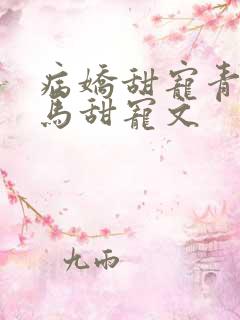 病嬌甜寵青
馬甜寵文
九雨